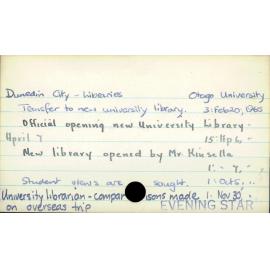 Dunedin City - Libraries Otago University
Transfer to new university library. 3: Feb 20, 1965
Official opening new University Library -
April 7 15: Ap 6,
New library opened by Mr. Kinsella
1: - 7, "
Student views are sought. 1: Oct 5,
University librarian - comparisons made 1: Nov 30,
on overseas trip
EVENING STAR